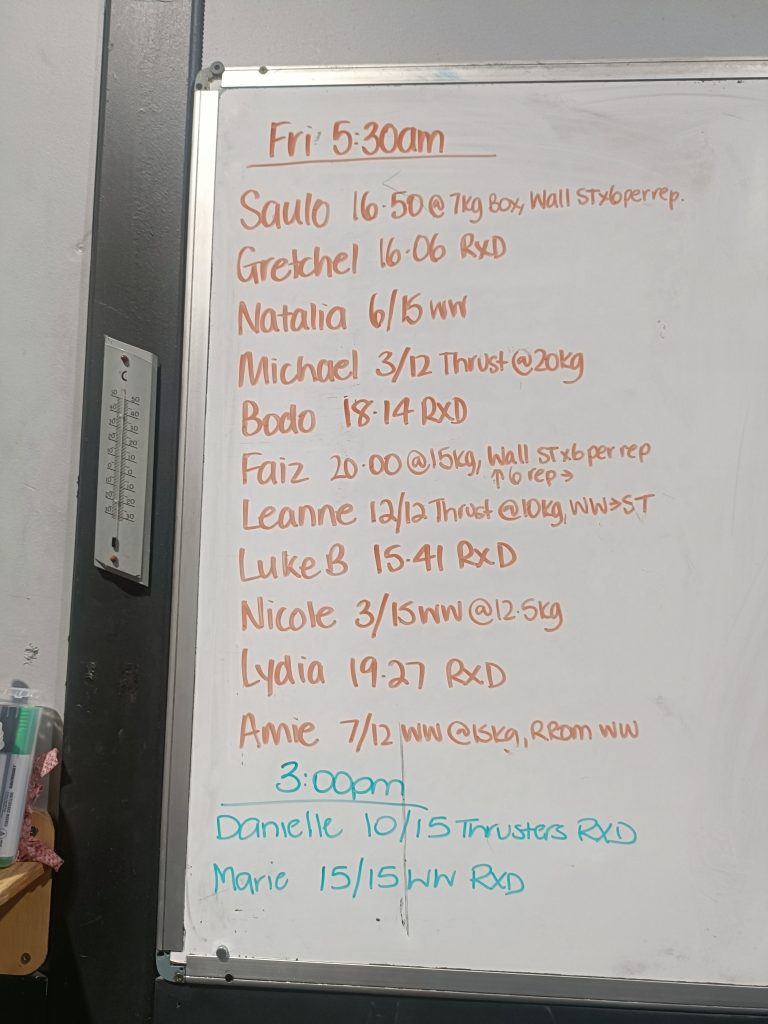 Fri 5:30am
Saulo 16.50 @ 7kg Box, Wall STx6 per rep.
Gretchel 16.06 RxD
Natalia 6/15 WW
Michael 3/12 Thrust @ 20kg
Bodo 18.14 RxD
Faiz 20.00 @ 15kg, Wall STx6 per rep
↑ 6 rep →
Leanne 12/12 Thrust @ 10kg, WW→ST
Luke B 15.41 RxD
Nicole 3/15 WW @ 12.5kg
Lydia 19.27 RxD
Amie 7/12 WW @ 15kg, RRom WW
3:00pm
Danielle 10/15 Thrusters RXD
Marie 15/15 WW RXD